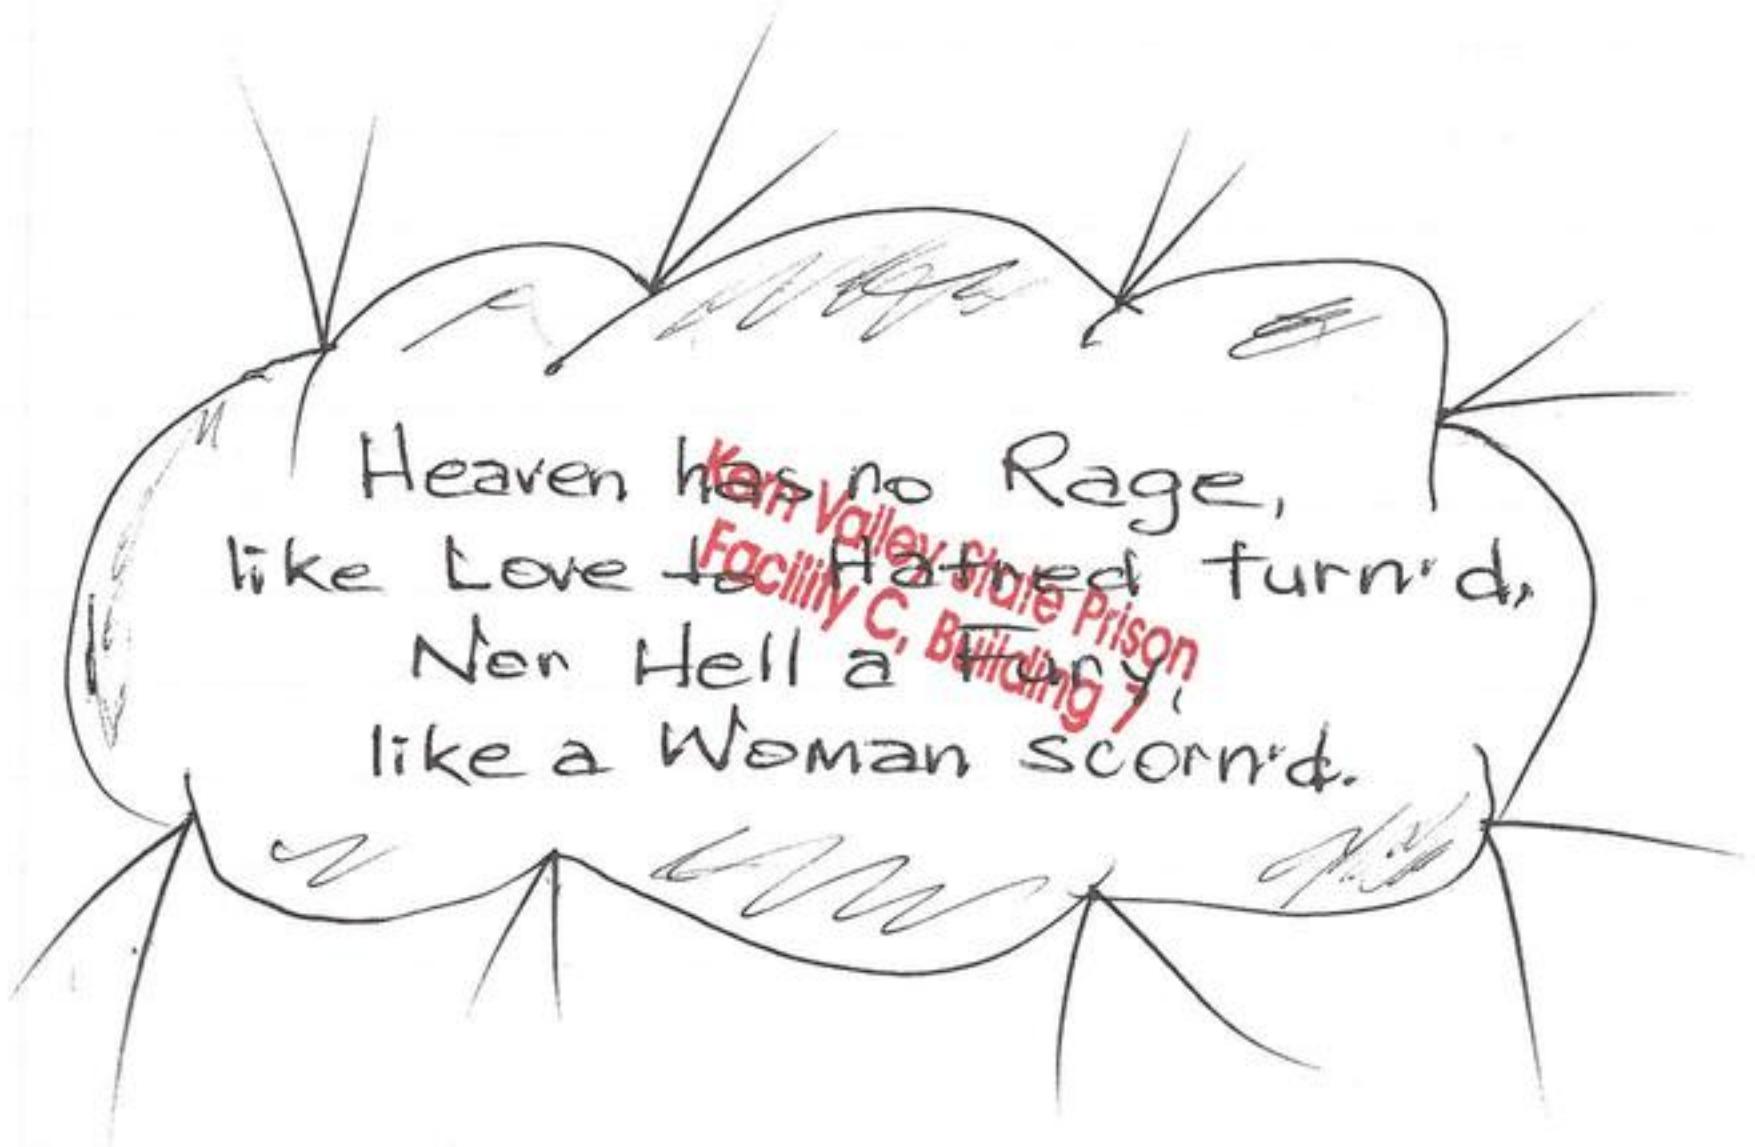 Heaven has no Rage,
like Love to Hatred turn'd,
Nor Hell a Fury,
like a Woman scorn'd.
Kern Valley State Prison
Facility C, Building 7